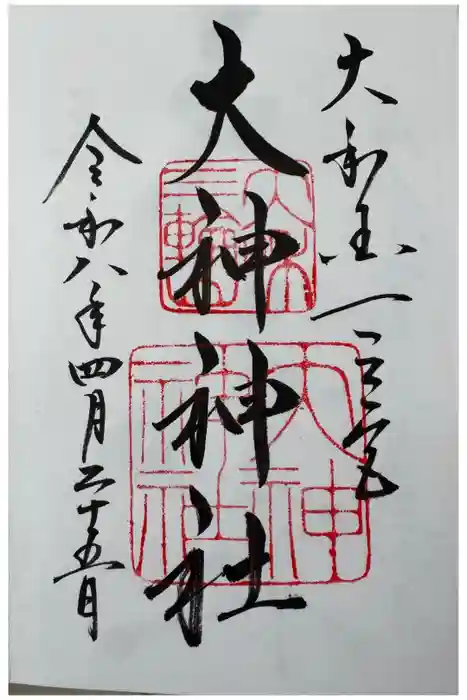 大和国一之宮
大神神社
令和八年四月二十五日
大神
神社